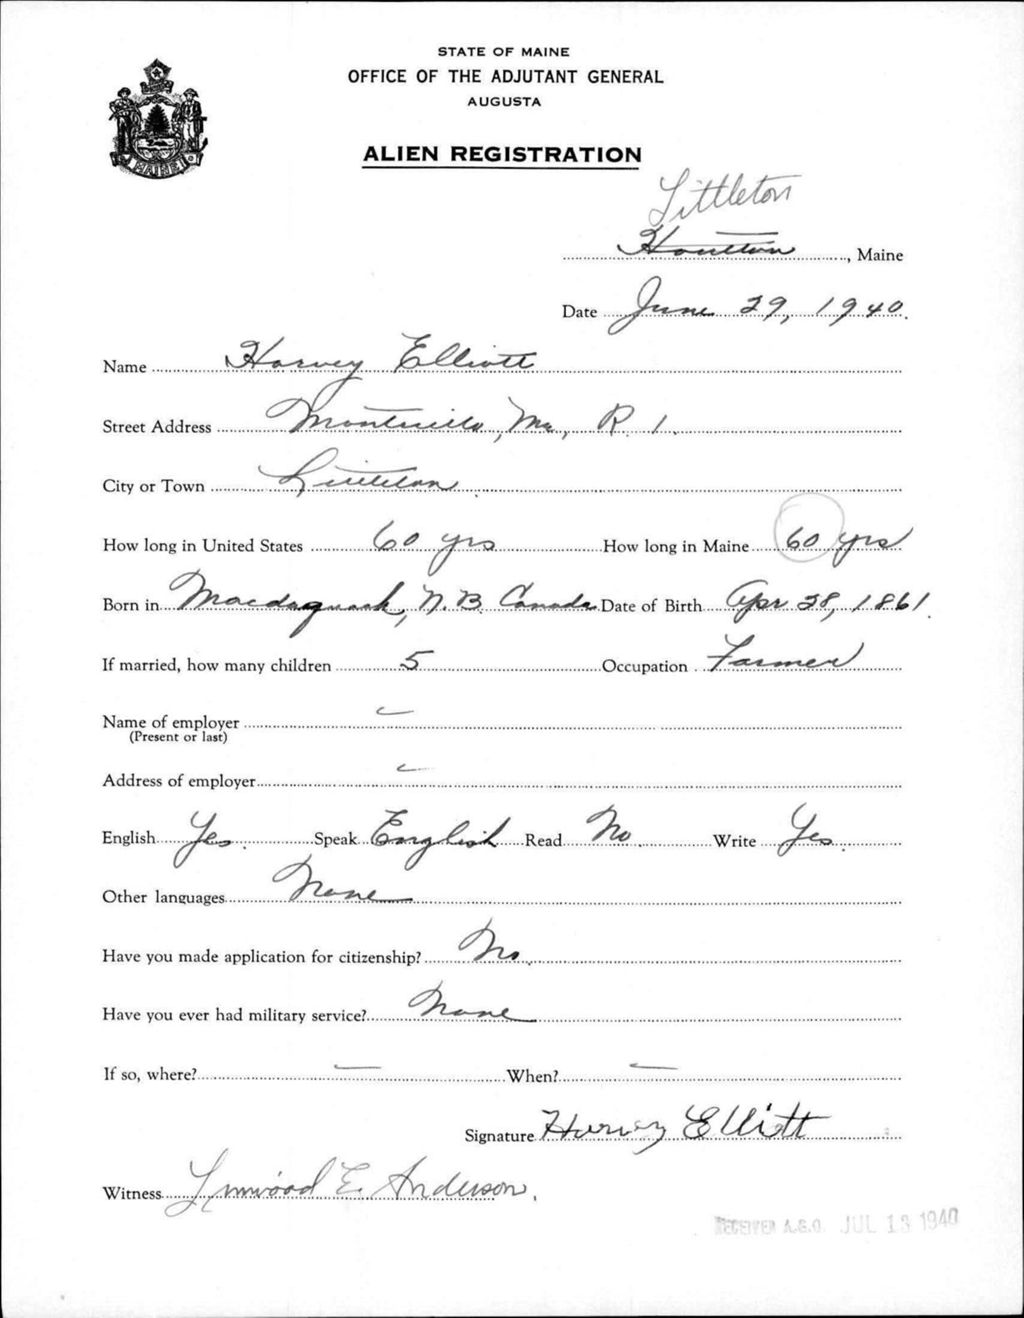 STATE OF MAINE
OFFICE OF THE ADJUTANT GENERAL
AUGUSTA
MAINE
ALIEN REGISTRATION
Littleton
Houlton, Maine
Date June 29, 1940.
Name Harvey Elliott
Street Address Monticello, Me., R. 1.
City or Town Littleton
How long in United States 60 yrs How long in Maine 60 yrs
Born in Macdaquack, N. B. Canada Date of Birth Apr 28, 1861.
If married, how many children 5 Occupation Farmer
Name of employer —
(Present or last)
Address of employer —
English Yes. Speak English Read No. Write Yes.
Other languages None
Have you made application for citizenship? No.
Have you ever had military service? None
If so, where? — When? —
Signature Harvey Elliott
Witness Linwood E. Anderson.
RECEIVED A.G.O. JUL 13 1940